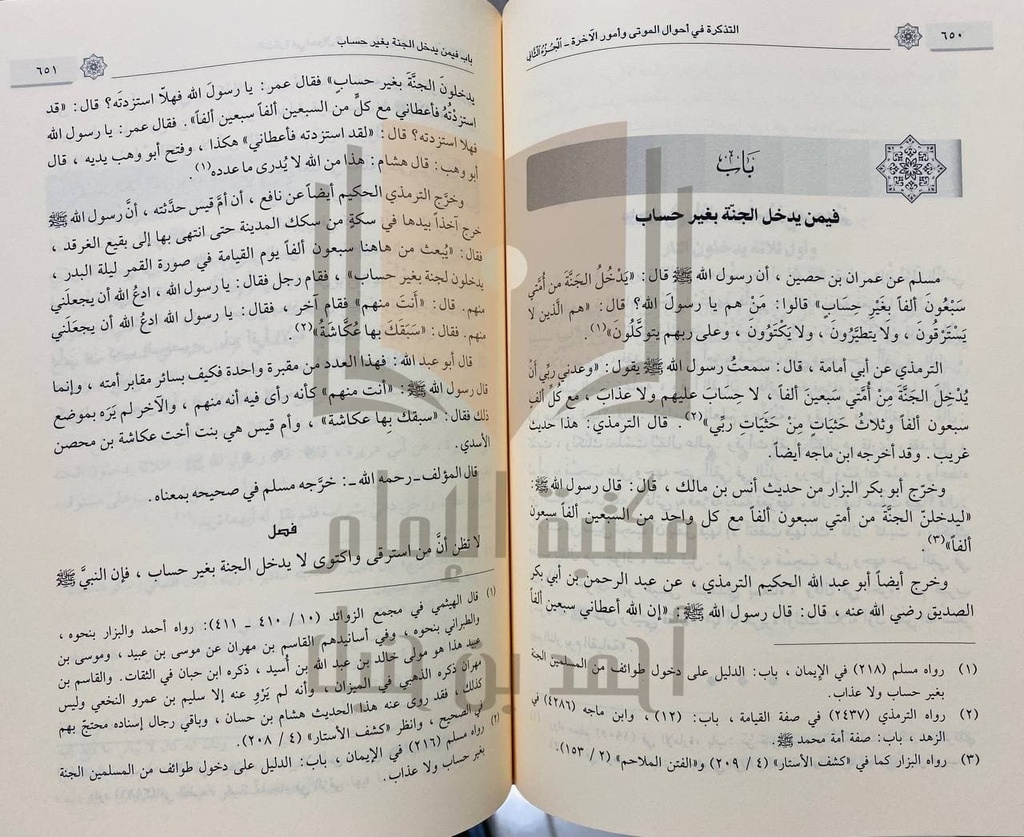 ٦٥٠
التذكرة في أحوال الموتى وأمور الآخرة - الجزء الثاني
باب
فيمن يدخل الجنة بغير حساب
مسلم عن عمران بن حصين ، أن رسول الله ﷺ قال: «يَدْخُلُ الجَنَّةَ من أُمَّتي
سَبْعُونَ ألفاً بغَيْرِ حِسابٍ» قالوا: مَنْ هم يا رسولَ الله؟ قال: «هم الَّذين لا
يَسْتَرْقُونَ ، ولا يتطيَّرُون ، ولا يكتَوُون ، وعلى ربهم يتوكَّلُون»(١).
الترمذي عن أبي أمامة ، قال: سمعتُ رسول الله ﷺ يقول: «وعدني ربِّي أنْ
يُدْخِلَ الجَنَّةَ مِنْ أُمَّتي سَبعينَ ألفاً ، لا حِسابَ عليهم ولا عذاب ، مع كُلِّ ألفٍ
سبعون ألفاً وثلاثُ حَثَيَاتٍ مِنْ حَثَيَاتِ ربِّي»(٢). قال الترمذي: هذا حديث
غريب. وقد أخرجه ابن ماجه أيضاً.
وخرّج أبو بكر البزار من حديث أنس بن مالك ، قال: قال رسول الله ﷺ:
«ليدخلنّ الجنَّة من أمتي سبعون ألفاً مع كل واحد من السبعين ألفاً سبعون
ألفاً»(٣).
وخرج أيضاً أبو عبد الله الحكيم الترمذي ، عن عبد الرحمن بن أبي بكر
الصديق رضي الله عنه ، قال: قال رسول الله ﷺ: «إن الله أعطاني سبعين ألفاً
(١) رواه مسلم (٢١٨) في الإيمان ، باب: الدليل على دخول طوائف من المسلمين الجنة
بغير حساب ولا عذاب.
(٢) رواه الترمذي (٢٤٣٧) في صفة القيامة ، باب: (١٢) ، وابن ماجه (٤٢٨٦) في
الزهد ، باب: صفة أمة محمد ﷺ.
(٣) رواه البزار كما في «كشف الأستار» (٤ / ٢٠٩) و«الفتن الملاحم» (٢ / ١٥٣).
باب فيمن يدخل الجنة بغير حساب
٦٥١
يدخلونَ الجنَّةَ بغير حسابٍ» فقال عمر: يا رسولَ الله فهلاّ استزدتَه؟ قال: «قد
استزدْتُهُ فأعطاني مع كلٍّ من السبعين ألفاً سبعين ألفاً». فقال عمر: يا رسول الله
فهلا استزدته؟ قال: «لقد استزدته فأعطاني» هكذا ، وفتح أبو وهب يديه ، قال
أبو وهب: قال هشام: هذا من الله لا يُدرى ما عدده(١).
وخرَّج الترمذي الحكيم أيضاً عن نافع ، أن أمَّ قيس حدَّثته ، أنَّ رسول الله ﷺ
خرج آخذاً بيدها في سكةٍ من سكك المدينة حتى انتهى بها إلى بقيع الغرقد ،
فقال: «يُبعث من هاهنا سبعون ألفاً يوم القيامة في صورة القمر ليلة البدر ،
يدخلون لجنة بغير حساب» ، فقام رجل فقال: يا رسول الله ، ادعُ الله أن يجعلَني
منهم. قال: «أَنتَ منهم» فقام آخر ، فقال: يا رسول الله ادعُ الله أن يجعَلَني
منهم. فقال: «سَبَقَكَ بها عُكَّاشةُ»(٢).
قال أبو عبد الله: فهذا العدد من مقبرة واحدة فكيف بسائر مقابر أمته ، وإنما
قال رسول الله ﷺ: «أنت منهم» كأنه رأى فيه أنه منهم ، والآخر لم يَرَه بموضع
ذلك فقال: «سبقك بها عكاشة» ، وأم قيس هي بنت أخت عكاشة بن محصن
الأسدي.
قال المؤلف - رحمه الله -: خرَّجه مسلم في صحيحه بمعناه.
فصل
لا تظن أنَّ من استرقى واكتوى لا يدخل الجنة بغير حساب ، فإن النبيَّ ﷺ
(١) قال الهيثمي في مجمع الزوائد (١٠ / ٤١٠ - ٤١١): رواه أحمد والبزار بنحوه ،
والطبراني بنحوه ، وفي أسانيدهم القاسم بن مهران عن موسى بن عبيد ، وموسى بن
عبيد هذا هو مولى خالد بن عبد الله بن أسيد ، ذكره ابن حبان في الثقات. والقاسم بن
مهران ذكره الذهبي في الميزان ، وأنه لم يَرْوِ عنه إلا سليم بن عمرو النخعي وليس
كذلك ، فقد روى عنه هذا الحديث هشام بن حسان ، وباقي رجال إسناده محتجّ بهم
في الصحيح ، وانظر «كشف الأستار» (٤ / ٢٠٨).
(٢) رواه مسلم (٢١٦) في الإيمان ، باب: الدليل على دخول طوائف من المسلمين الجنة
بغير حساب ولا عذاب.
مكتبة الإمام
أحمد بن حنبل